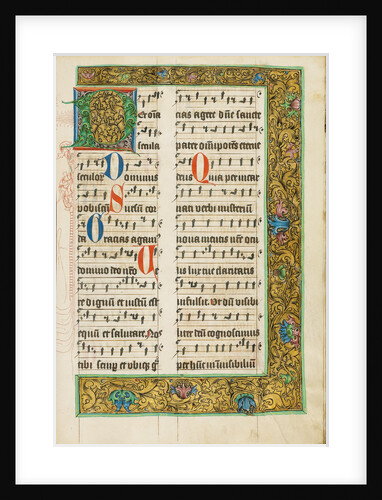 P er om̄a
secula
seculoꝝ Dominus
vobiscum Sursum cor
da Gratias agam⁹
domino deo nr̄o
re dignum et iustum est
equum et salutare Nos
tibi semper et vbique gr̄a
cias agere dn̄e sancte
pater omnipotens eterne
deus Quia per incar
nati verbi misterium
noua mentis nr̄e oci
lis lux tue claritatis
infulsit Vt dum visibi
liter deum cognoscimus
per hunc in inuisibilium